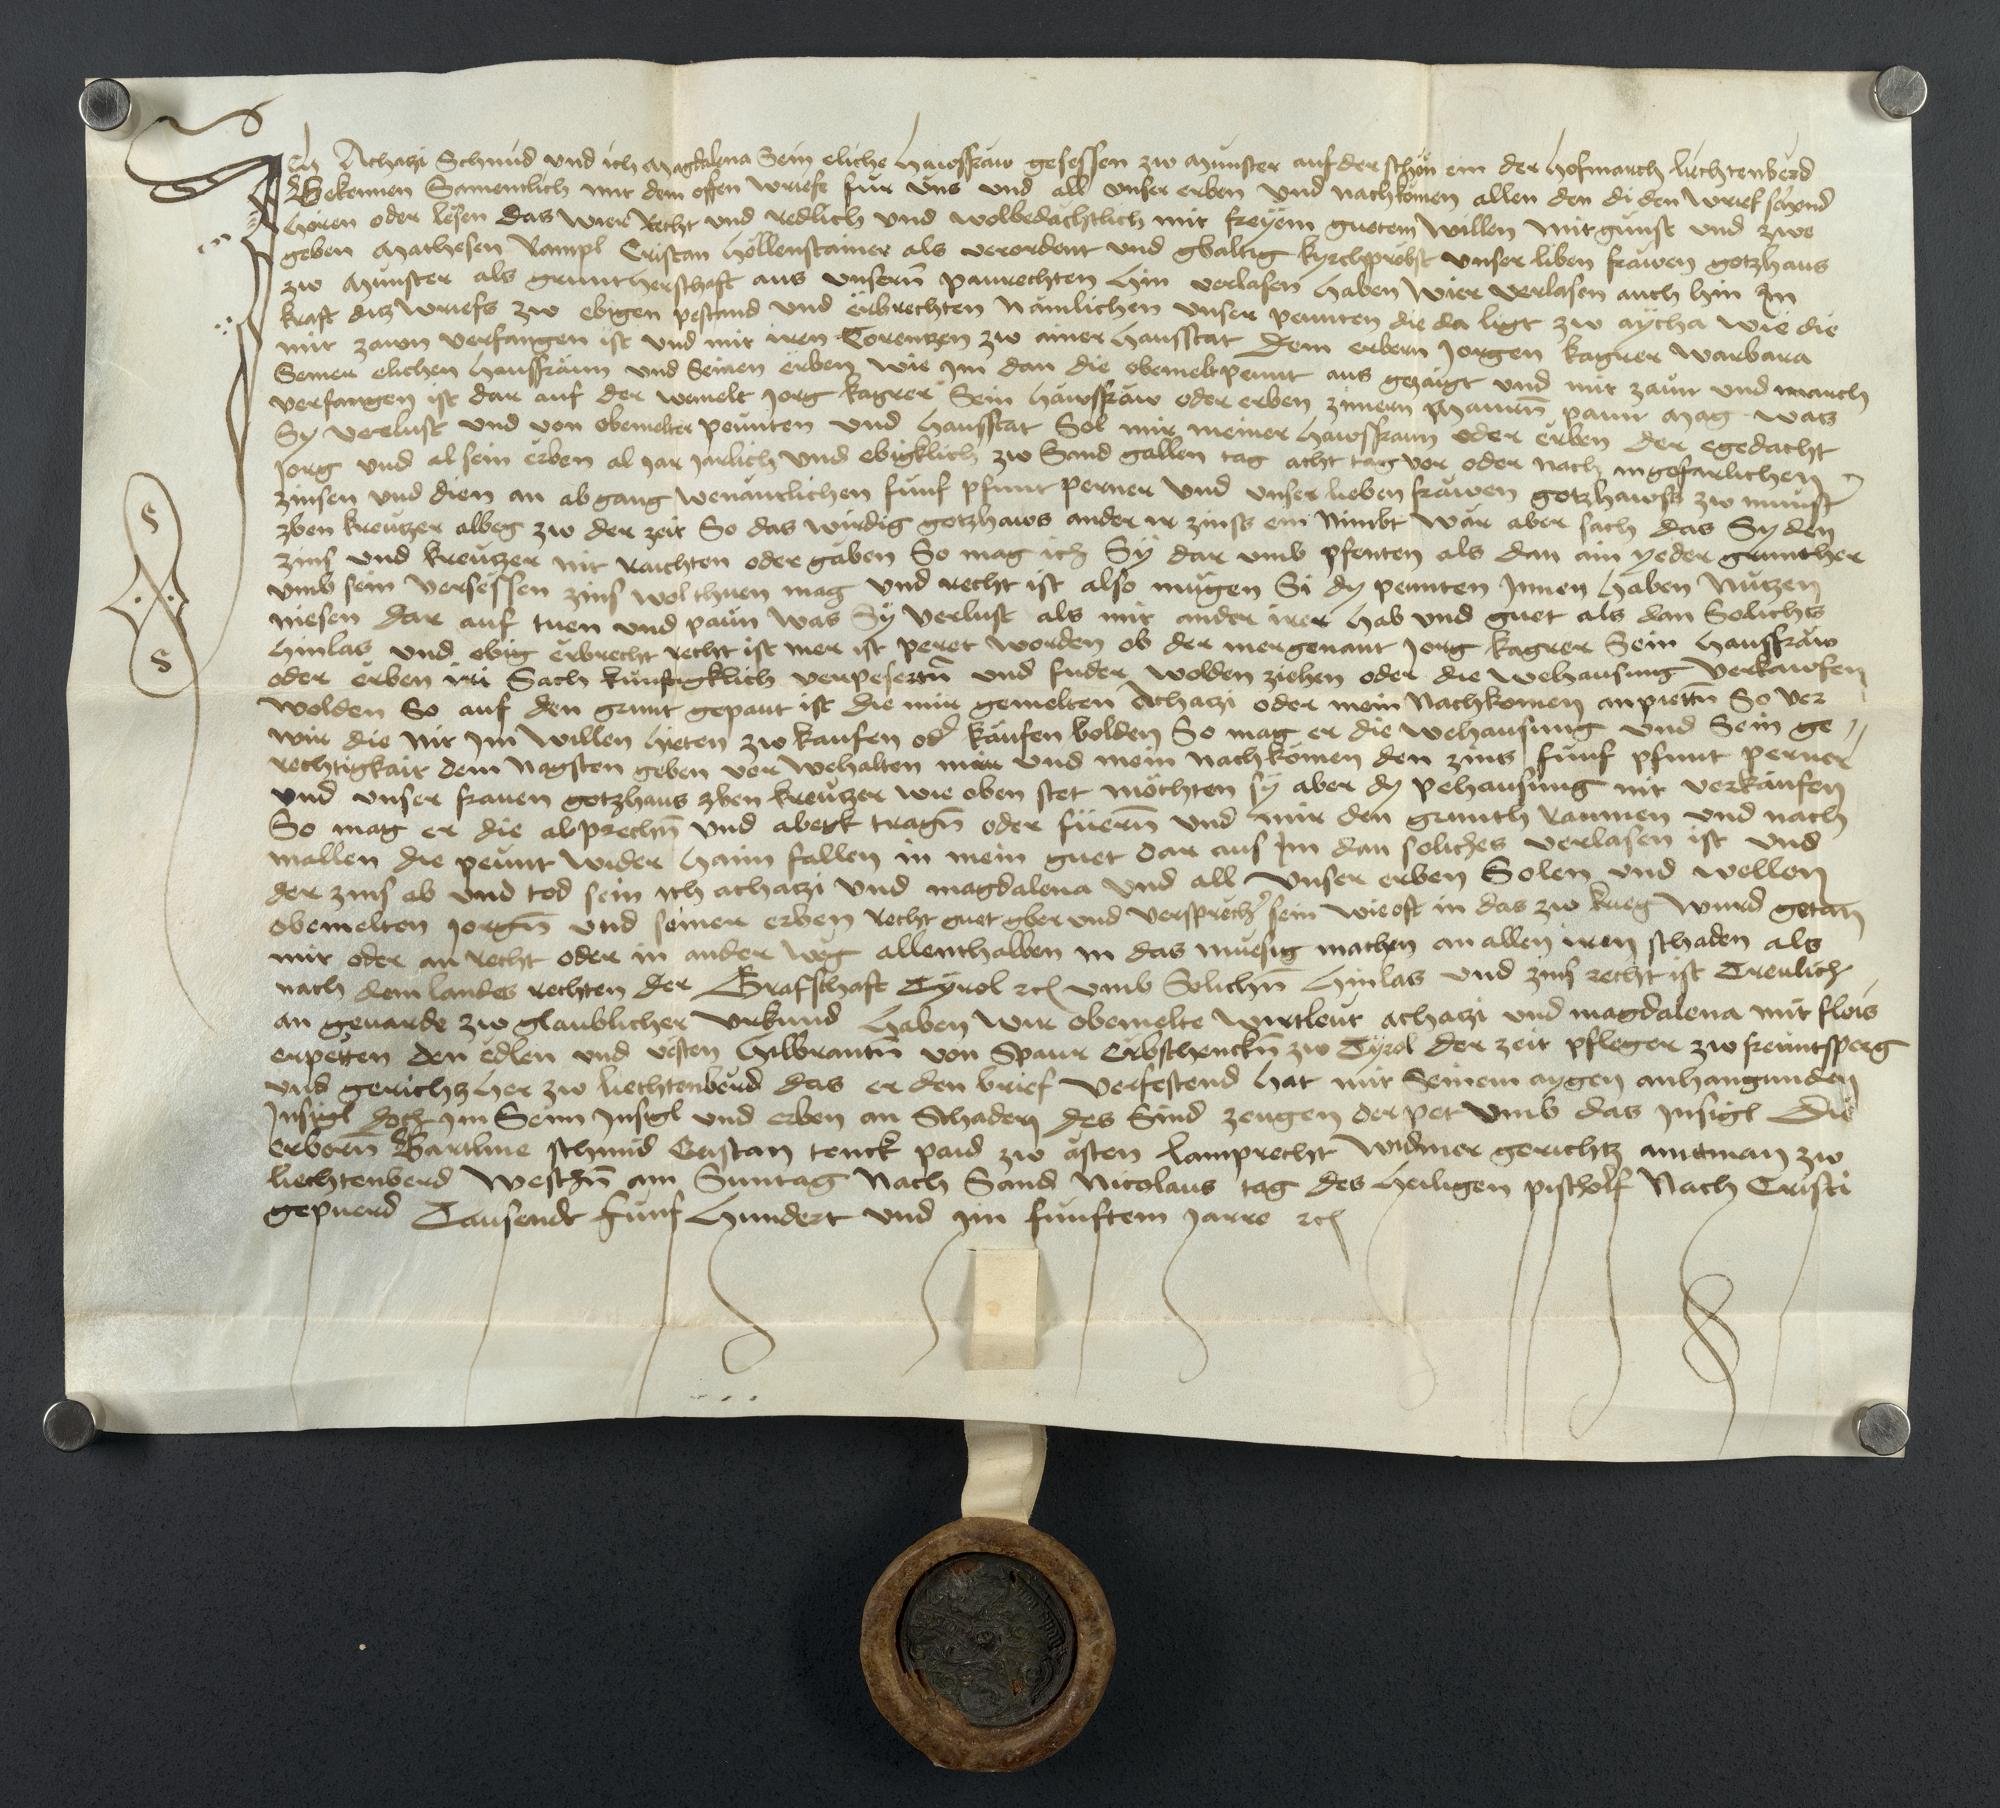 Ich Achatzi Schmid und ich Magdalena Sein eliche hawsfraw gesessen zw Munster auf der schön ein der hofmarch liechtenberd
Bekennen Samentlich mit dem offen wriefe fur uns und all unser erben und nachkomen allen den di den wrief
hören oder lesen das wier Recht und redlich und wolbedachtlich mit freyem guetem willen mit gunst und
geben Mathesen Rampl Cristan höllenstainer als verordent und gbaltig kyrchpröbst unser liben frawen gotzhaus
zw Munster als gruntherschaft aus unsern paurechten hin verlasen haben wier verlasen auch hin Im
kraft ditz wriefs zw ebigen pestand und erbrechten Nämlichen unser peunten die da ligt zw aycha wie die
mit zawn verfangen ist und mit iren Torentzen zw ainer hausstat dem erbern Jorgen kagrer warbara
Seiner elichen hausfraun und Seinen erben wie Im dan die obemelt peunt aus gezaigt und mit zaun und march
verfangen ist dar auf der wemelt Jorg kagrer Sein hawsfraw oder erben zimern Mauern paun Mag was
Sy verlust und von obemelter peunten und hausstat Sol mir meiner hawsfraun oder erben der egedacht
Jorg und al sein erben al Jar Jarlich und ebigklich zw Sand gallen tag acht tag vor oder nach ungefarlichen
zinsen und dien an abgang wenantlichen funf pfunt perner und unser lieben frawen gotzhawss zw munst
zben kreutzer albeg zw der zeit So das wirdig gotzhaws ander ir zinss ein Nimbt wär aber sach das Sy den
zins und kreutzer nit Raichten oder gaben So mag ich Sy dar umb pfenten als dan ain yeder grunther
umb sein versessen zins wol thuen mag und recht ist also mugen Si dy peunten Innen haben Nutzen
niesen dar auf tuen und paun was Sy verlust als mit ander irer hab und guet als dan Solichs
hinlas und ebig erbrecht recht ist mer ist peret worden ob der mergenant Jorg kagrer Sein hausfraw
oder erben iri Sach kunftigklich verpesertn und fuder wolden ziehen oder die wehausung verkawfen
wolden So auf den grunt gepaut ist die mir gemelten Achatzi oder mein Nachkomen anpiettn So ver
wir die Nit Im willen hieten zw kaufen od kaufen bolden So mag er die wehausung und Sein ge
rechtigkait dem Nagsten geben vor wehalten mir und mein nachkomen den zins funf pfunt perner
und unser frauen gotzhaus zben kreutzer wie oben stet möchten sy aber dy pehausung nit verkaufen
So mag er die abprechn und abegk tragn oder füern und mir den grunth Raumen und nach
mallen die peunt wider haim fallen in mein guet dar aus Im dan soliches verlasen ist und
der zins ab und tod sein ich achatzi und magdalena und all unser erben Solen und wellen
obemelten Jorgn und seinen erben Recht guet gber und versprecher sein wie oft in das zw krieg wurd getan
mit oder an Recht oder in ander weg allenthalben in das muesig machen an allen iren schaden als
nach dem landes rechten der Grafschaft Tyrol etc umb Solichn hinlas und zins recht ist Treulich
an gevarde zw glaublicher urkund haben wir obemelte wirtleut achatzi und magdalena mit fleis
erpetten den edlen und vesten hilbrantn von Spaur Erbschenckn zw Tyrol der zeit pfleger zw freuntsperg
und gerichs her zw liechtenberd das er den brief verfestend hat mit Seinem aygen anhangunden
Insigl doch im Seim Insigl und erben an Schaden des Sind zeugen der pet umb das Insigl Die
erbern Bartlme schmid Cristan tenck paid zw asten lamprecht widmer gerichtz amtman zw
liechtenberd weschn am Suntag Nach Sand Nicolaus tag des heiligen pischolf Nach Cristi
gepuerd Tausendt funf hundert und Im funftem Jarre etc